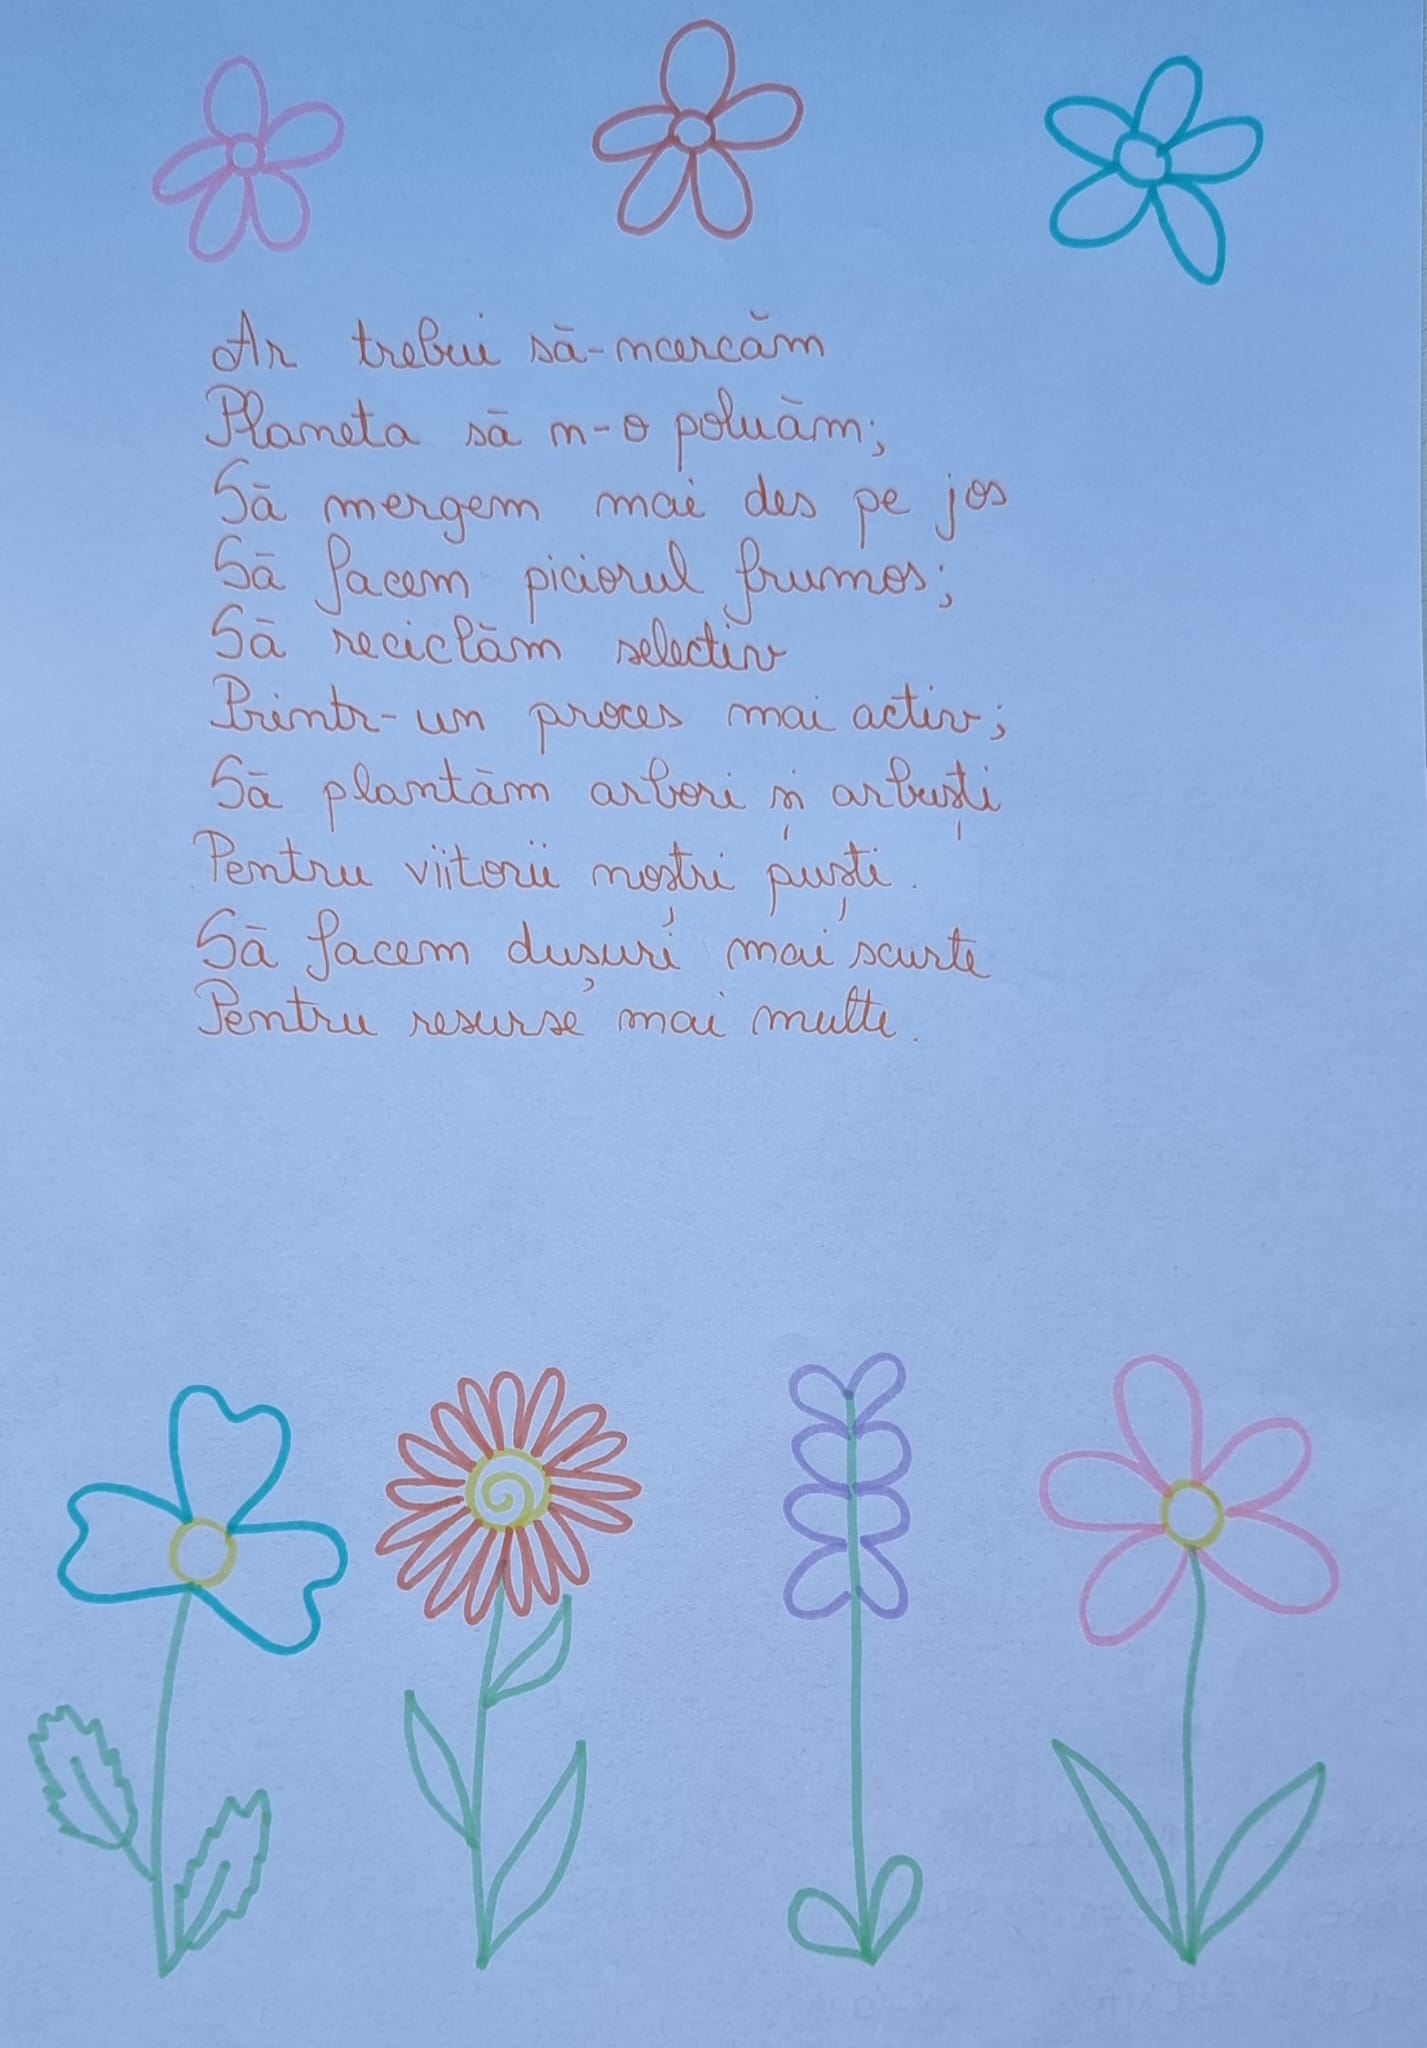 Ar trebui să-ncercăm
Planeta să n-o poluăm;
Să mergem mai des pe jos
Să facem piciorul frumos;
Să reciclăm selectiv
Printr-un proces mai activ;
Să plantăm arbori și arbuști
Pentru viitorii noștri puști.
Să facem dușuri mai scurte
Pentru resurse mai multe.